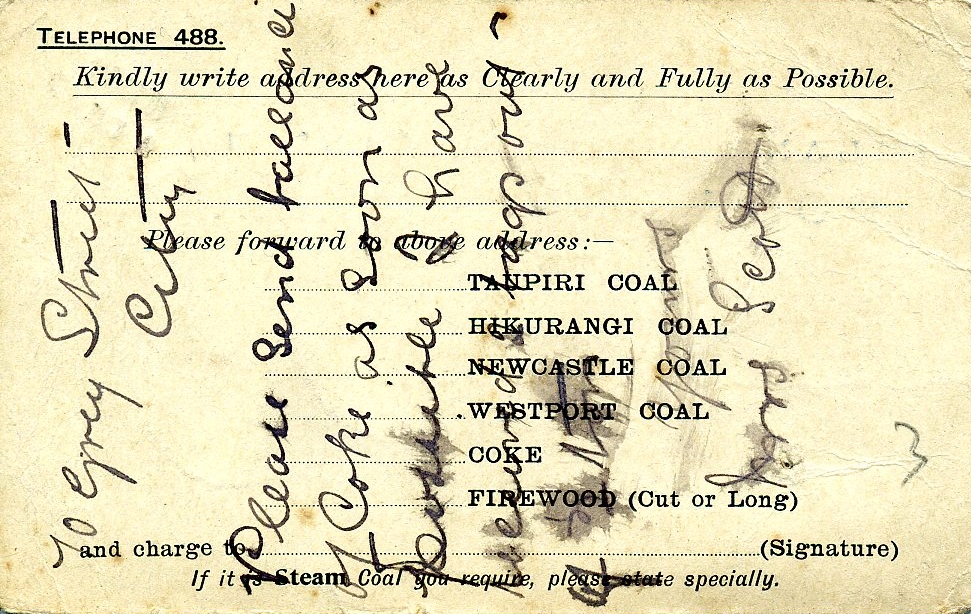 TELEPHONE 488.
Kindly write address here as Clearly and Fully as Possible.
Please forward to above address:—
TAUPIRI COAL
HIKURANGI COAL
NEWCASTLE COAL
WESTPORT COAL
COKE
FIREWOOD (Cut or Long)
and charge to (Signature)
If it is Steam Coal you require, please state specially.
70 Grey Street
City
Please Send ballance
of Coke as Soon as
Possible I have
run out
yours
Scott